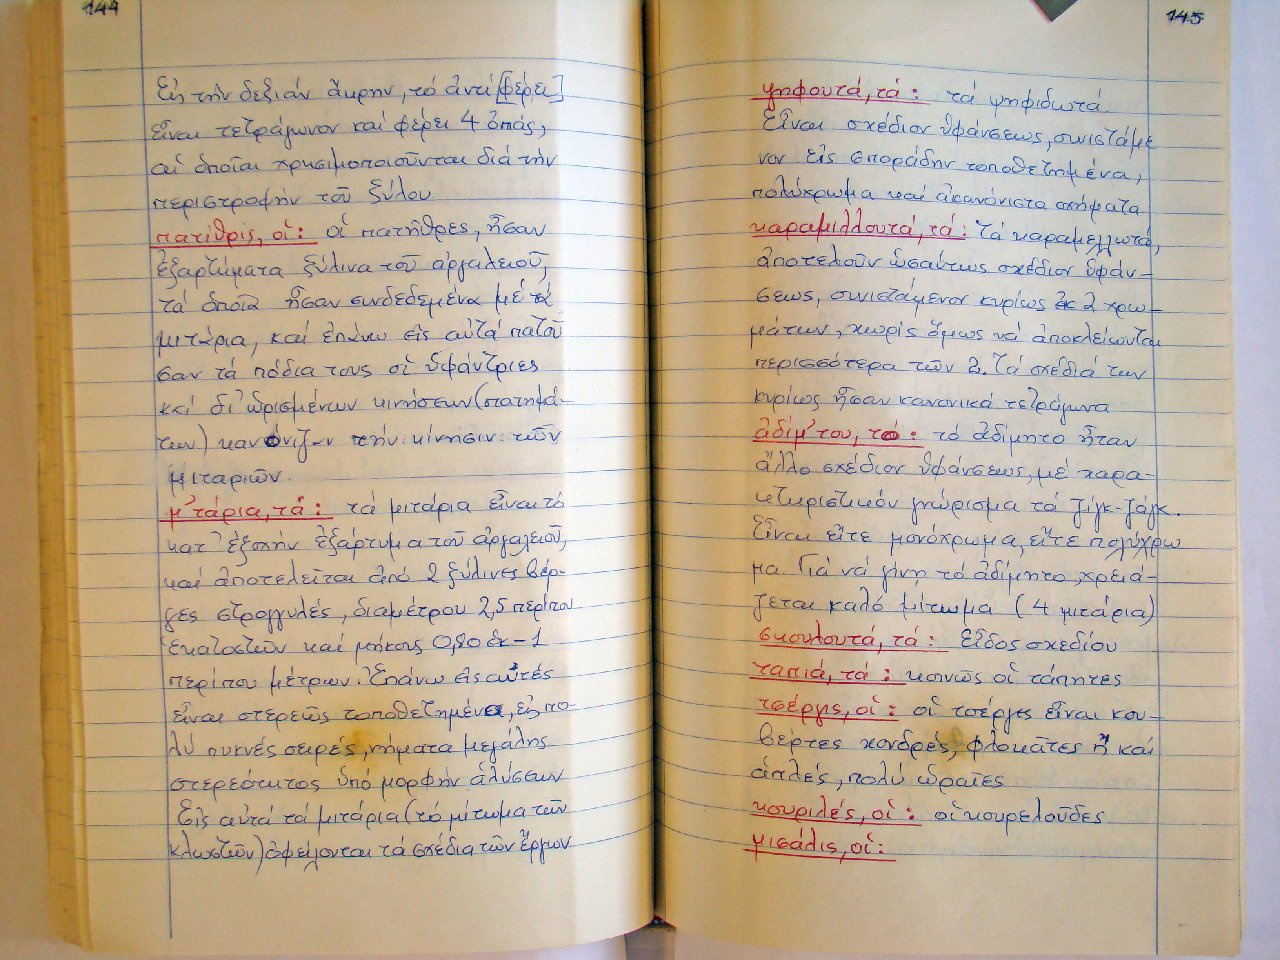 144
Εἰς τὴν δεξιάν ἄκρην, τό ἀντί [φέρει]
εἶναι τετράγωνον καί φέρει 4 ὀπάς,
αἱ ὁποῖαι χρησιμοποιοῦνται διά τήν
περιστροφήν τοῦ ξύλου
πατίθρις, οἱ: οἱ πατῆθρες, ἦσαν
ἐξαρτήματα ξύλινα τοῦ ἀργαλειοῦ,
τά ὁποῖα ἦσαν συνδεδεμένα μέ τά
μιτάρια, καί ἐπάνω εἰς αὐτά πατοῦ
σαν τά πόδια τους οἱ ὑφάντριες
καί δι' ὡρισμένων κινήσεων (πατημά-
των) κανόνιζαν τήν κίνησιν τῶν
μιταριῶν.
μ'τάρια, τά: τά μιτάρια εἶναι τό
κατ' ἐξοχήν ἐξάρτημα τοῦ ἀργαλειοῦ,
καί ἀποτελεῖται ἀπό 2 ξύλινες βέρ-
γες στρογγυλές, διαμέτρου 2,5 περίπου
ἑκατοστῶν καί μήκους 0,80 ἑκ-1
περίπου μέτρων. Ἐπάνω εἰς αὐτές
εἶναι στερεῶς τοποθετημένα, εἰς πο-
λύ πυκνές σειρές, νήματα μεγάλης
στερεότητος ὑπό μορφήν ἁλύσεων
Εἰς αὐτά τά μιτάρια (τό μίτωμα τῶν
κλωστῶν) ὀφείλονται τά σχέδια τῶν ἔργων
145
ψηφουτά, τά: τά ψηφιδωτά
Εἶναι σχέδιον ὑφάνσεως, συνιστάμε
νον εἰς σποράδην τοποθετημένα,
πολύχρωμα καί ἀκανόνιστα σχήματα
καραμιλλουτά, τά: τά καραμελλωτά,
ἀποτελοῦν ὡσαύτως σχέδιον ὑφάν-
σεως, συνιστάμενον κυρίως ἐκ 2 χρω-
μάτων, χωρίς ὅμως νά ἀποκλείωνται
περισσότερα τῶν 2. Τά σχέδιά των
κυρίως ἦσαν κανονικά τετράγωνα
ἀδίμ'του, τό: τό ἀδίμητο ἦταν
ἄλλο σχέδιον ὑφάνσεως, μέ χαρα-
κτηριστικόν γνώρισμα τά ζίγκ-ζάγκ.
Εἶναι εἴτε μονόχρωμα, εἴτε πολύχρω
μα. Γιά νά γίνη τό ἀδίμητο, χρειά-
ζεται καλό μίτωμα (4 μιτάρια)
σκουλουτά, τά: Εἶδος σχεδίου
ταπιά, τά: κοινῶς οἱ τάπητες
τσέργις, οἱ: οἱ τσέργες εἶναι κου-
βέρτες χονδρές, φλοκᾶτες ἤ καί
ἁπλές, πολύ ὡραῖες
κουριλές, οἱ: οἱ κουρελοῦδες
μισάλις, οἱ: